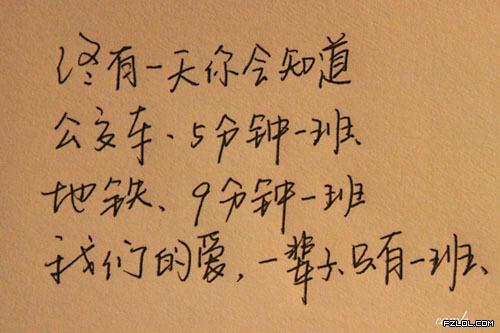 终有一天你会知道
公交车、5分钟一班、
地铁、9分钟一班
我们的爱,一辈子只有一班、
FZLOL.COM